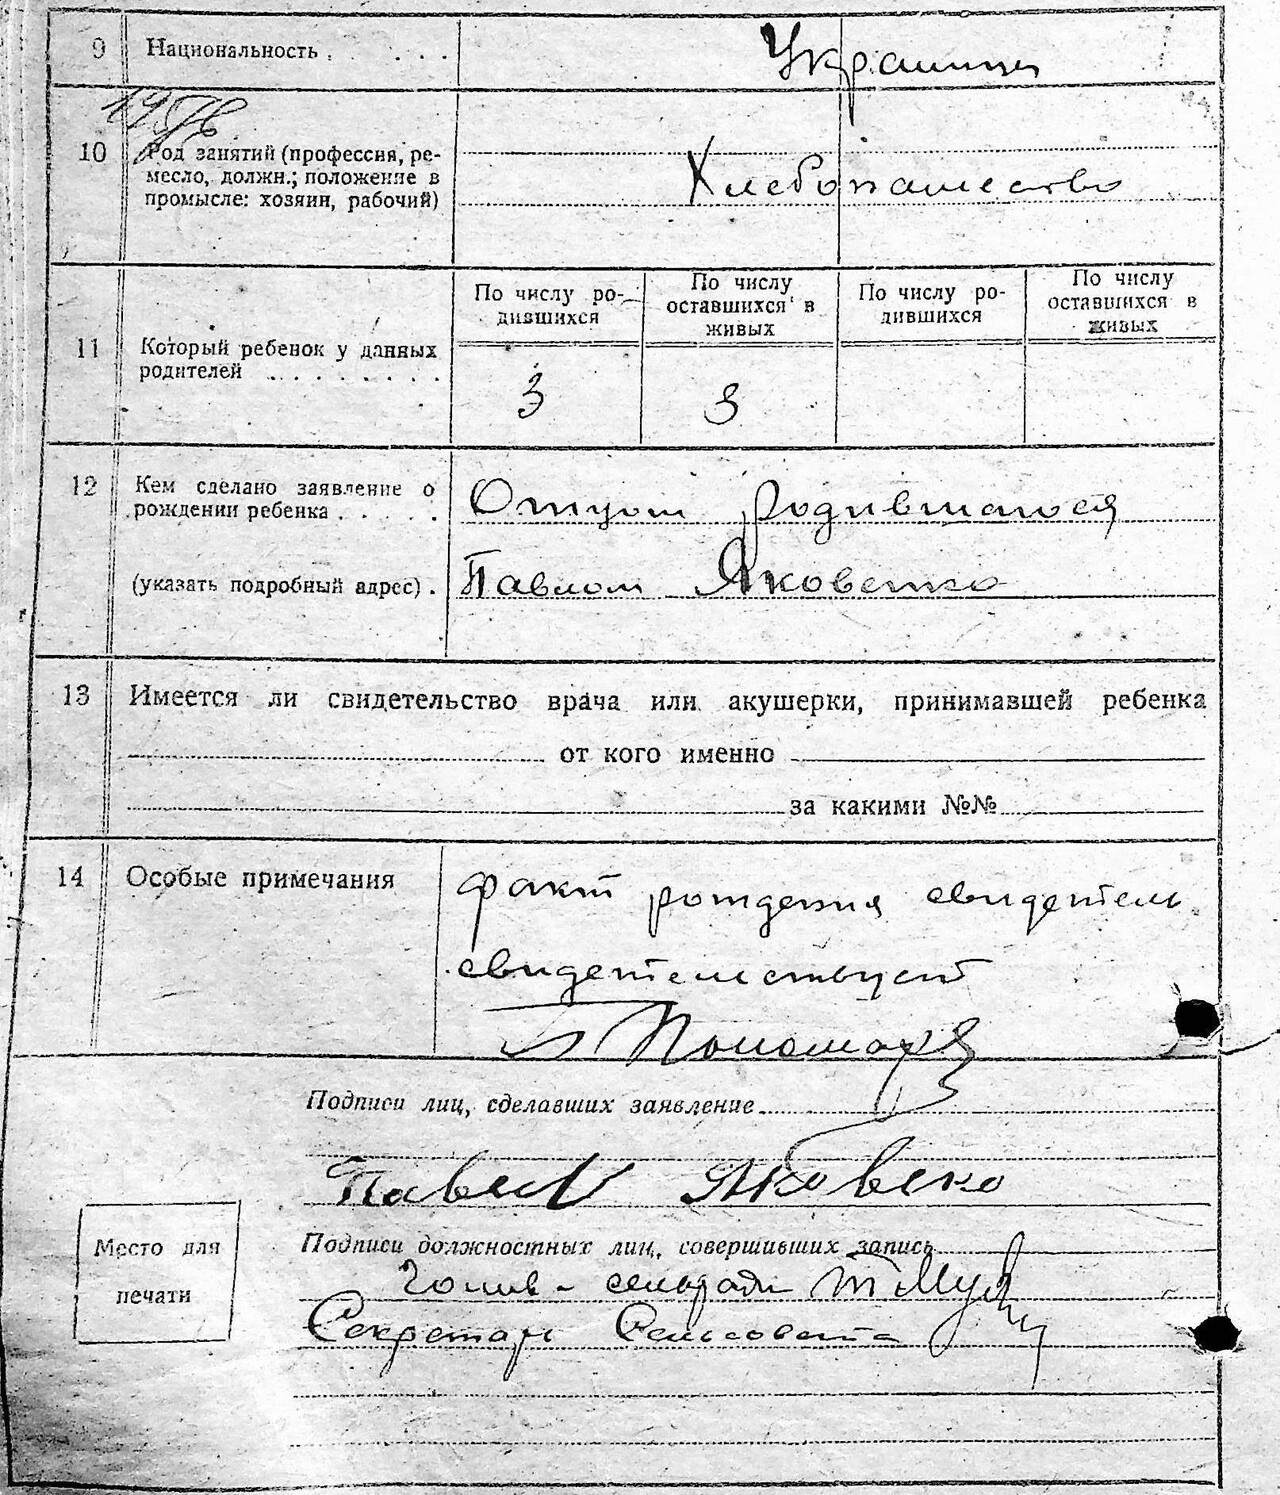 9 Национальность . . . . Украинцы
10 Род занятий (профессия, ре-
месло, должн.; положение в
промысле: хозяин, рабочий)
Хлебопашество
11 Который ребенок у данных
родителей . . . . . . . . .
По числу ро-
дившихся
По числу
оставшихся в
живых
По числу ро-
дившихся
По числу
оставшихся в
живых
3 3
12 Кем сделано заявление о
рождении ребенка . . . . .
(указать подробный адрес) .
Отцом родившагося
Павлом Яковенко
13 Имеется ли свидетельство врача или акушерки, принимавшей ребенка
от кого именно
за какими №№
14 Особые примечания
факт рождения свидетель
свидетельствует
Пономарь
Подписи лиц, сделавших заявление
Павел Яковеко
Место для
печати
Подписи должностных лиц, совершивших запись
Голив. сельради
Секретарь Сельсовета